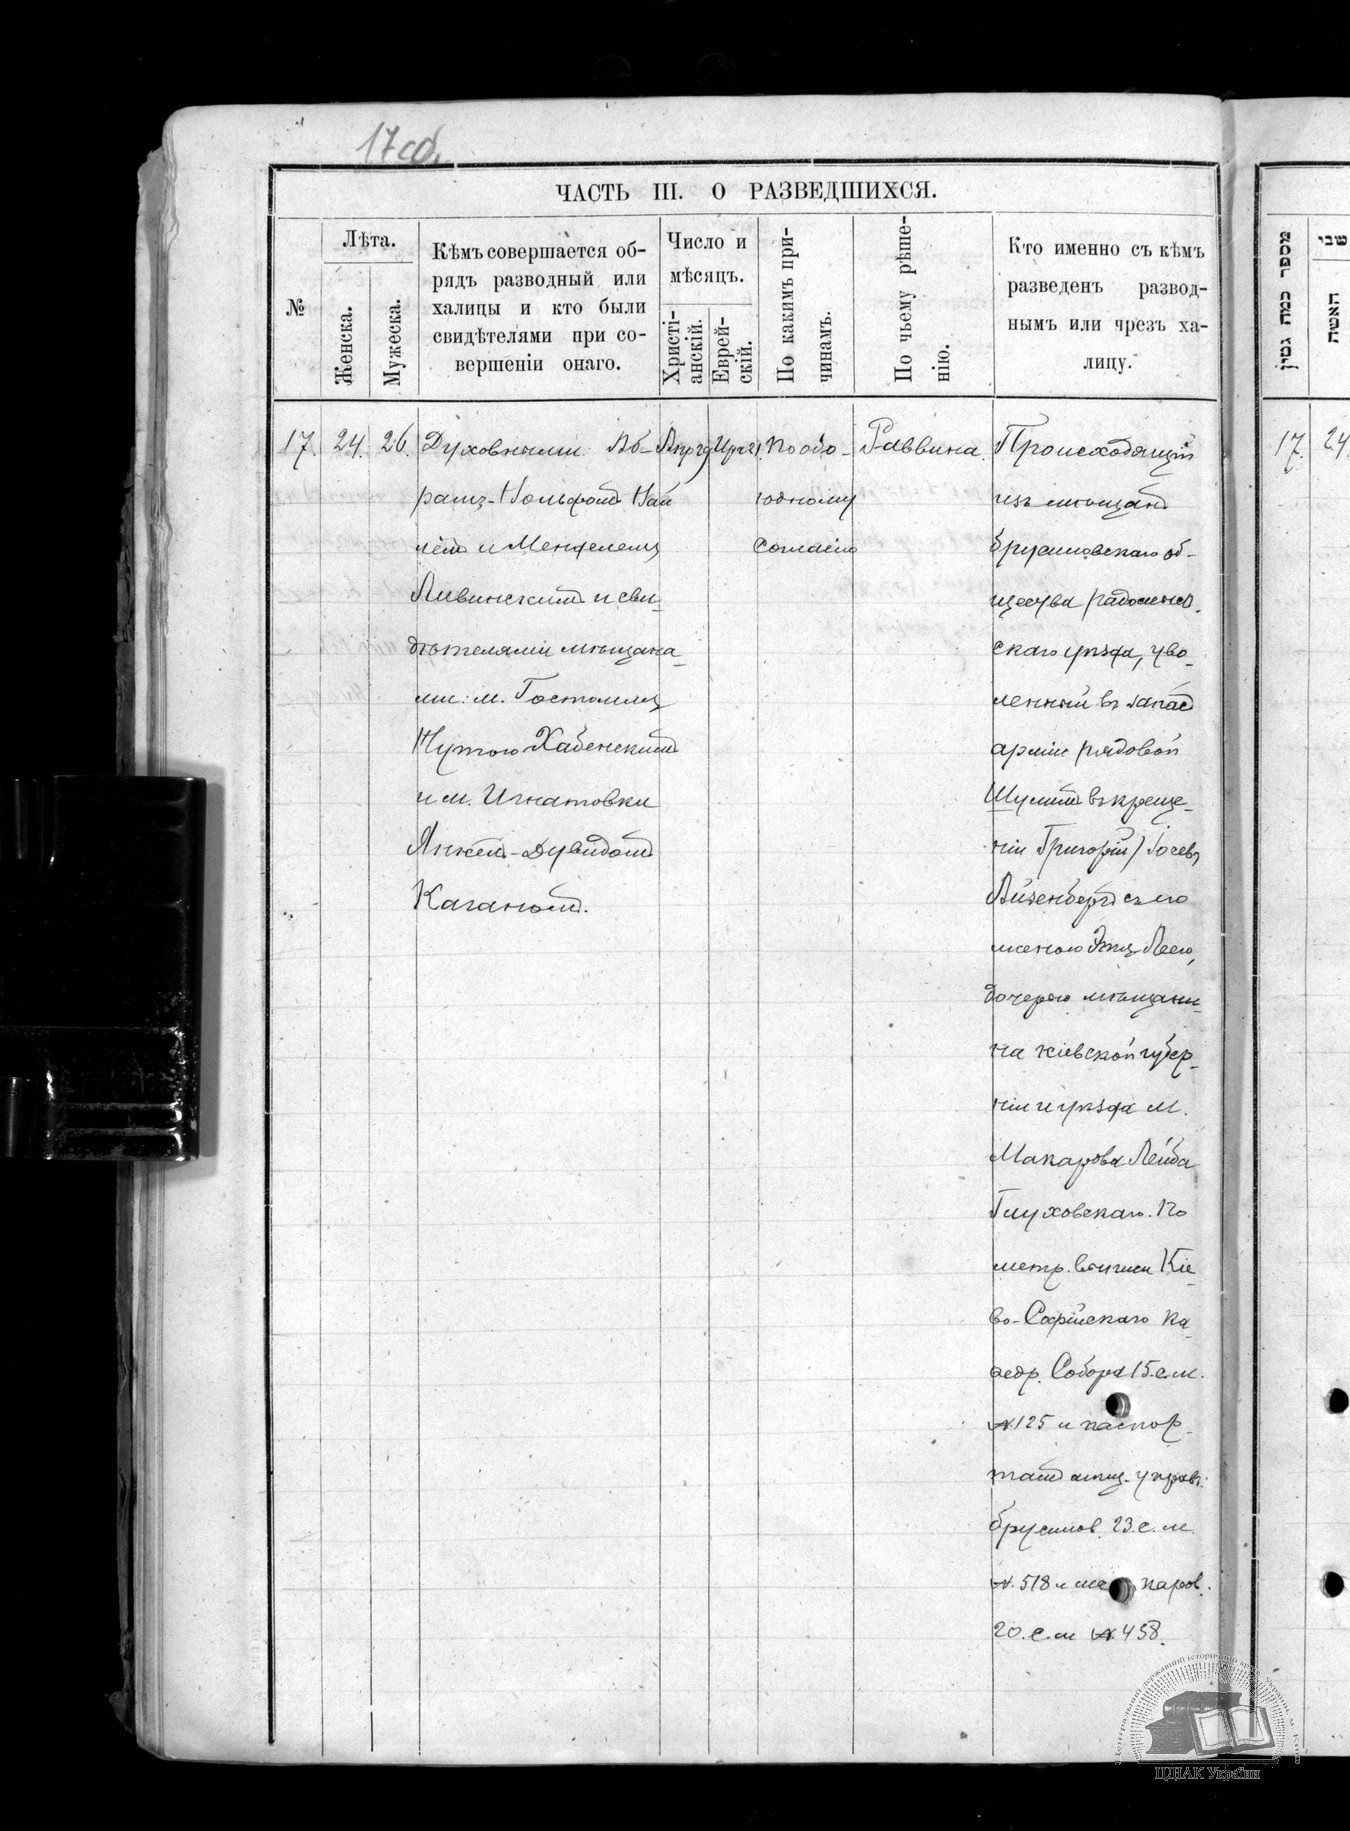 17 об.
ЧАСТЬ III. О РАЗВЕДШИХСЯ.
№
Лѣта.
Женска.
Мужеска.
Кѣмъ совершается об-
рядъ разводный или
халицы и кто были
свидѣтелями при со-
вершеніи онаго.
Число и
мѣсяцъ.
Христі-
анскій.
Еврей-
скій.
По какимъ при-
чинамъ.
По чьему рѣше-
нію.
Кто именно съ кѣмъ
разведенъ развод-
нымъ или чрезъ ха-
лицу.
מספר כמה גטין
שני
האשה
17.
24.
26.
Духовными: Аб-
рамъ-Вольфомъ
и Менделемъ
Ливинскимъ и сви-
дѣтелями мѣщана-
ми: м. Гостомля
Хабенскимъ
и м. Игнатовки
Янкел-Дувидомъ
Каганомъ.
По обо-
юдному
согласію
Раввина.
Происходящій
изъ мѣщанъ
брусиловскаго об-
щества радомысл.
скаго уѣзда, уво-
ленный въ запас
арміи рядовой
Шулим въ креще-
ніи Григорій) Іосевъ
Айзенбергъ съ его
женою Леею,
дочерью мѣщани-
на кіевской губер-
ніи и уѣзда м.
Макарова Лейба
Глуховскаго. По
метр. выписи Кіе-
во-Софійскаго ка-
ѳедр. Собора 15.с.м.
№.125 и паспор-
тамъ мѣщ. управ.
брусилов. 23.с.м.
№.518 и каров.
20.с.м №.458.
17.
24
Центральний державний історичний архів України, м. Київ
ЦДІАК України